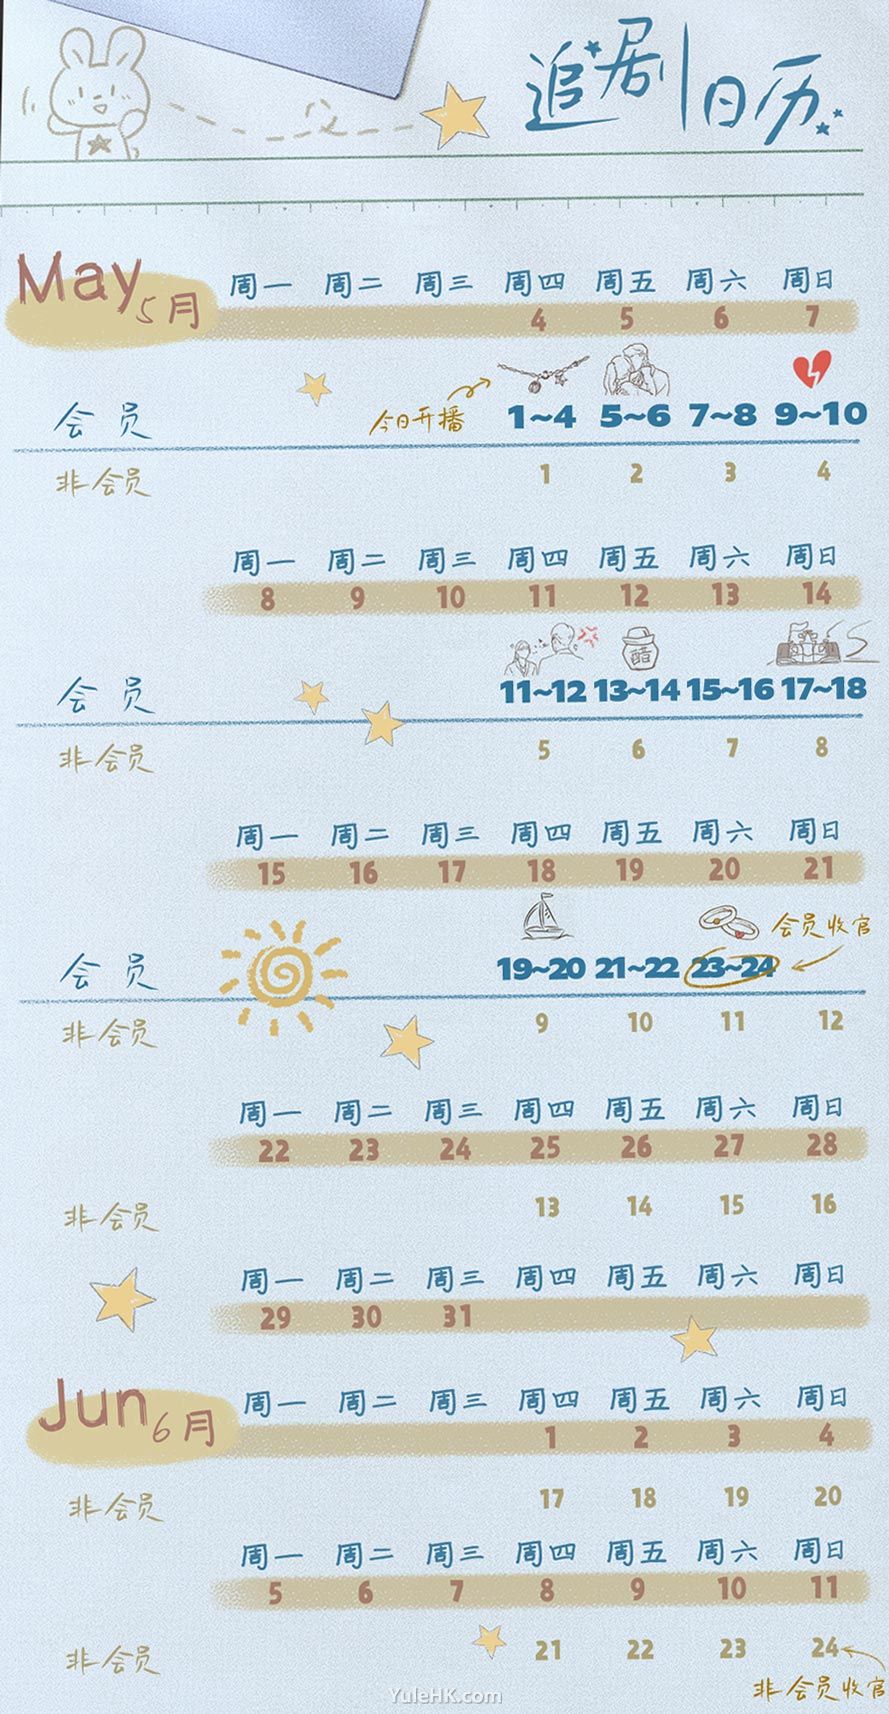 追剧日历
May 5月
周一 周二 周三 周四 周五 周六 周日
4 5 6 7
今日开播
会员 1~4 5~6 7~8 9~10
非会员 1 2 3 4
周一 周二 周三 周四 周五 周六 周日
8 9 10 11 12 13 14
醋
会员 11~12 13~14 15~16 17~18
非会员 5 6 7 8
周一 周二 周三 周四 周五 周六 周日
15 16 17 18 19 20 21
会员收官
会员 19~20 21~22 23~24
非会员 9 10 11 12
周一 周二 周三 周四 周五 周六 周日
22 23 24 25 26 27 28
非会员 13 14 15 16
周一 周二 周三 周四 周五 周六 周日
29 30 31
Jun 6月
周一 周二 周三 周四 周五 周六 周日
1 2 3 4
非会员 17 18 19 20
周一 周二 周三 周四 周五 周六 周日
5 6 7 8 9 10 11
非会员 21 22 23 24
非会员收官
YuleHK.com